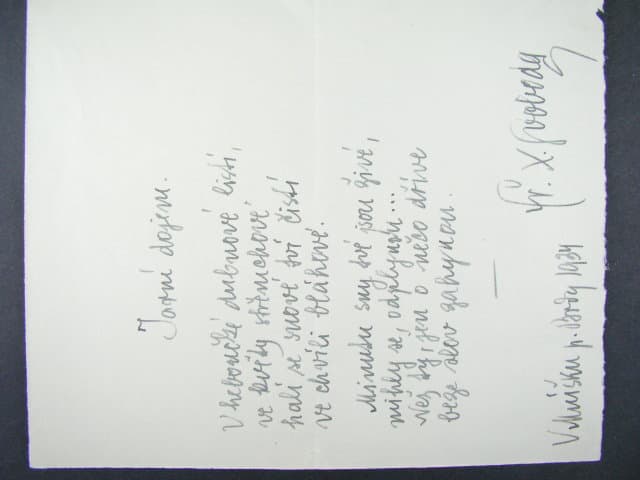 Jarní dojem.
V heboučké dubnové listí,
ve květy střemchové
halí se snové tví čistí
ve chvíli bláhové.
Minutu sny tvé jsou živé,
mihly se, odplynou...
Než ty, jen o něco dříve
beze slov zahynou.
V Mníšku p. Brdy 1934
Fr. X. Svoboda